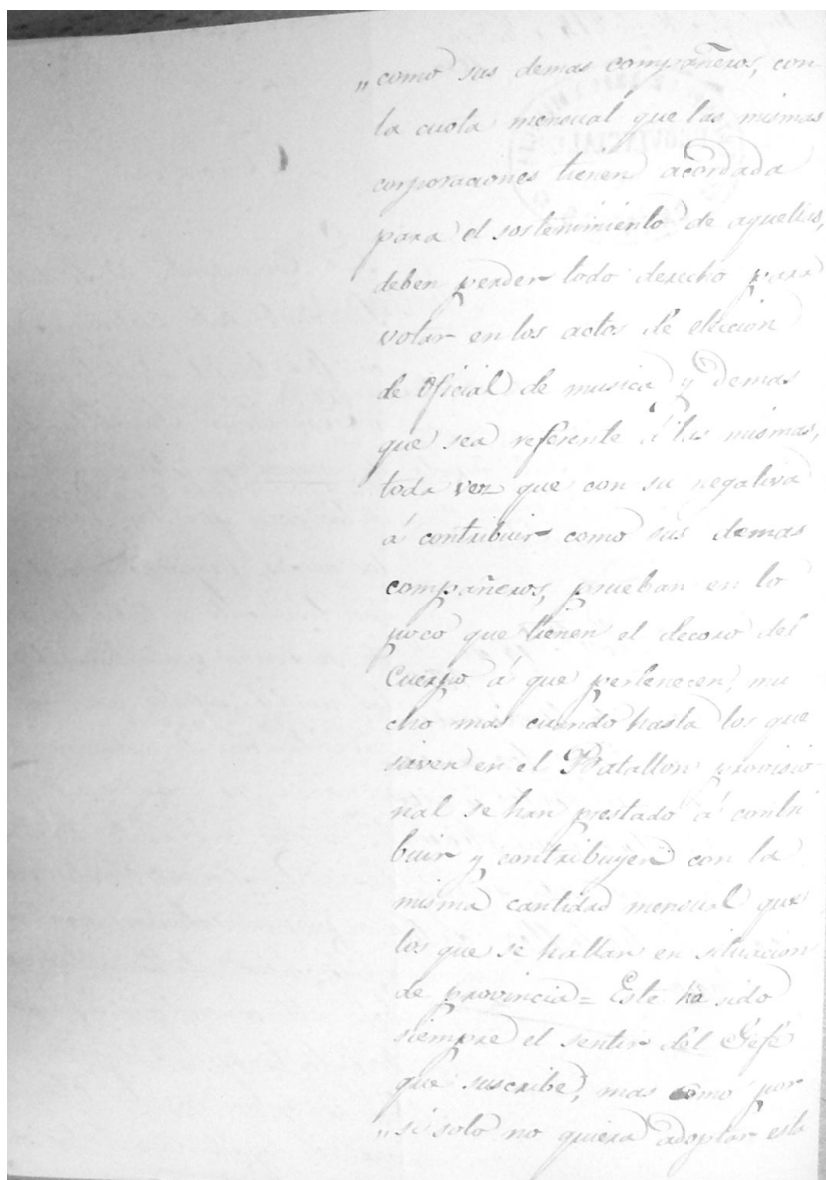 „ como sus demas compañeros, con
la cuota mensual que las mismas
corporaciones tienen acordada
para el sostenimiento de aquellas,
deben perder todo derecho para
votar en los actos de eleccion
de Oficial de musica y demas
que sea referente á las mismas,
toda vez que con su negativa
á contribuir como sus demas
compañeros, prueban en lo
poco que tienen el decoro del
Cuerpo á que pertenecen, mu
cho mas cuando hasta los que
sirven en el Batallon provisio
nal se han prestado á contri
buir y contribuyen con la
misma cantidad mensual que
los que se hallan en situacion
de provincia = Este ha sido
siempre el sentir del Gefe
que suscribe, mas como por
„ si solo no quiera adoptar esta